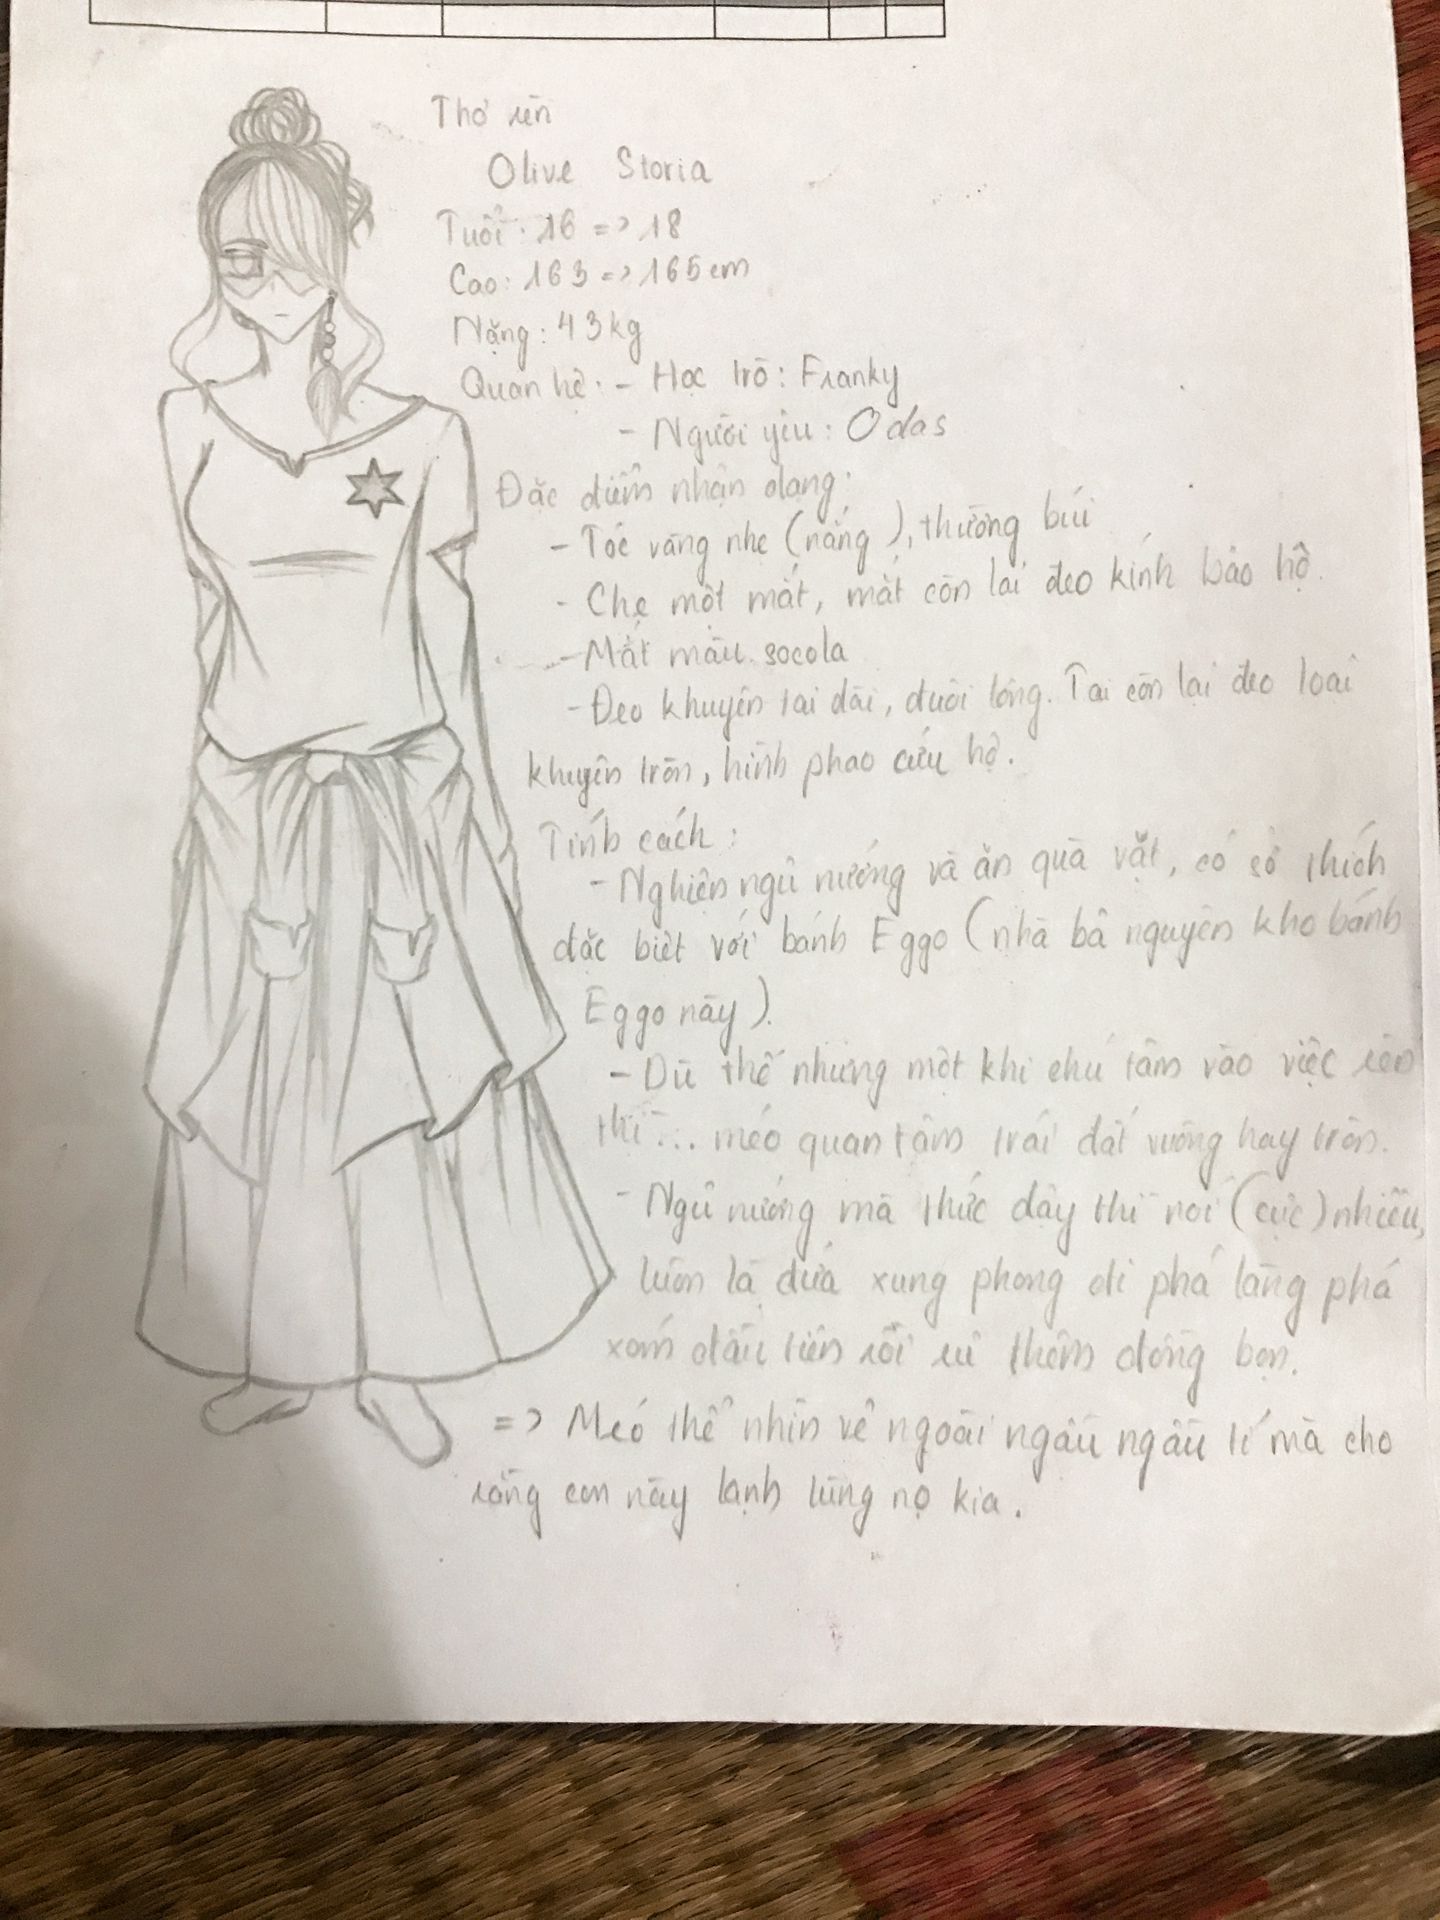 Thợ rèn
Olive Storia
Tuổi: 16 => 18
Cao: 163 => 165cm
Nặng: 43kg
Quan hệ: - Học trò: Franky
- Người yêu: Odas
Đặc điểm nhận dạng:
- Tóc vàng nhẹ (nắng), thường búi
- Che một mắt, mắt còn lại đeo kính bảo hộ.
- Mắt màu socola
- Đeo khuyên tai dài, đuôi lông. Tai còn lại đeo loại
khuyên tròn, hình phao cứu hộ.
Tính cách:
- Nghiện ngủ nướng và ăn quà vặt, có sở thích
đặc biệt với bánh Eggo (nhà bả nguyên kho bánh
Eggo này).
- Dù thế nhưng một khi chú tâm vào việc rèn
thì... méo quan tâm trái đất vuông hay tròn.
- Ngủ nướng mà thức dậy thì nói (cực) nhiều,
luôn là đứa xung phong đi phá làng phá
xóm đầu tiên rồi rủ thêm đồng bọn.
=> Meó thể nhìn vẻ ngoài ngầu ngầu tí mà cho
rằng con này lạnh lùng nọ kia.